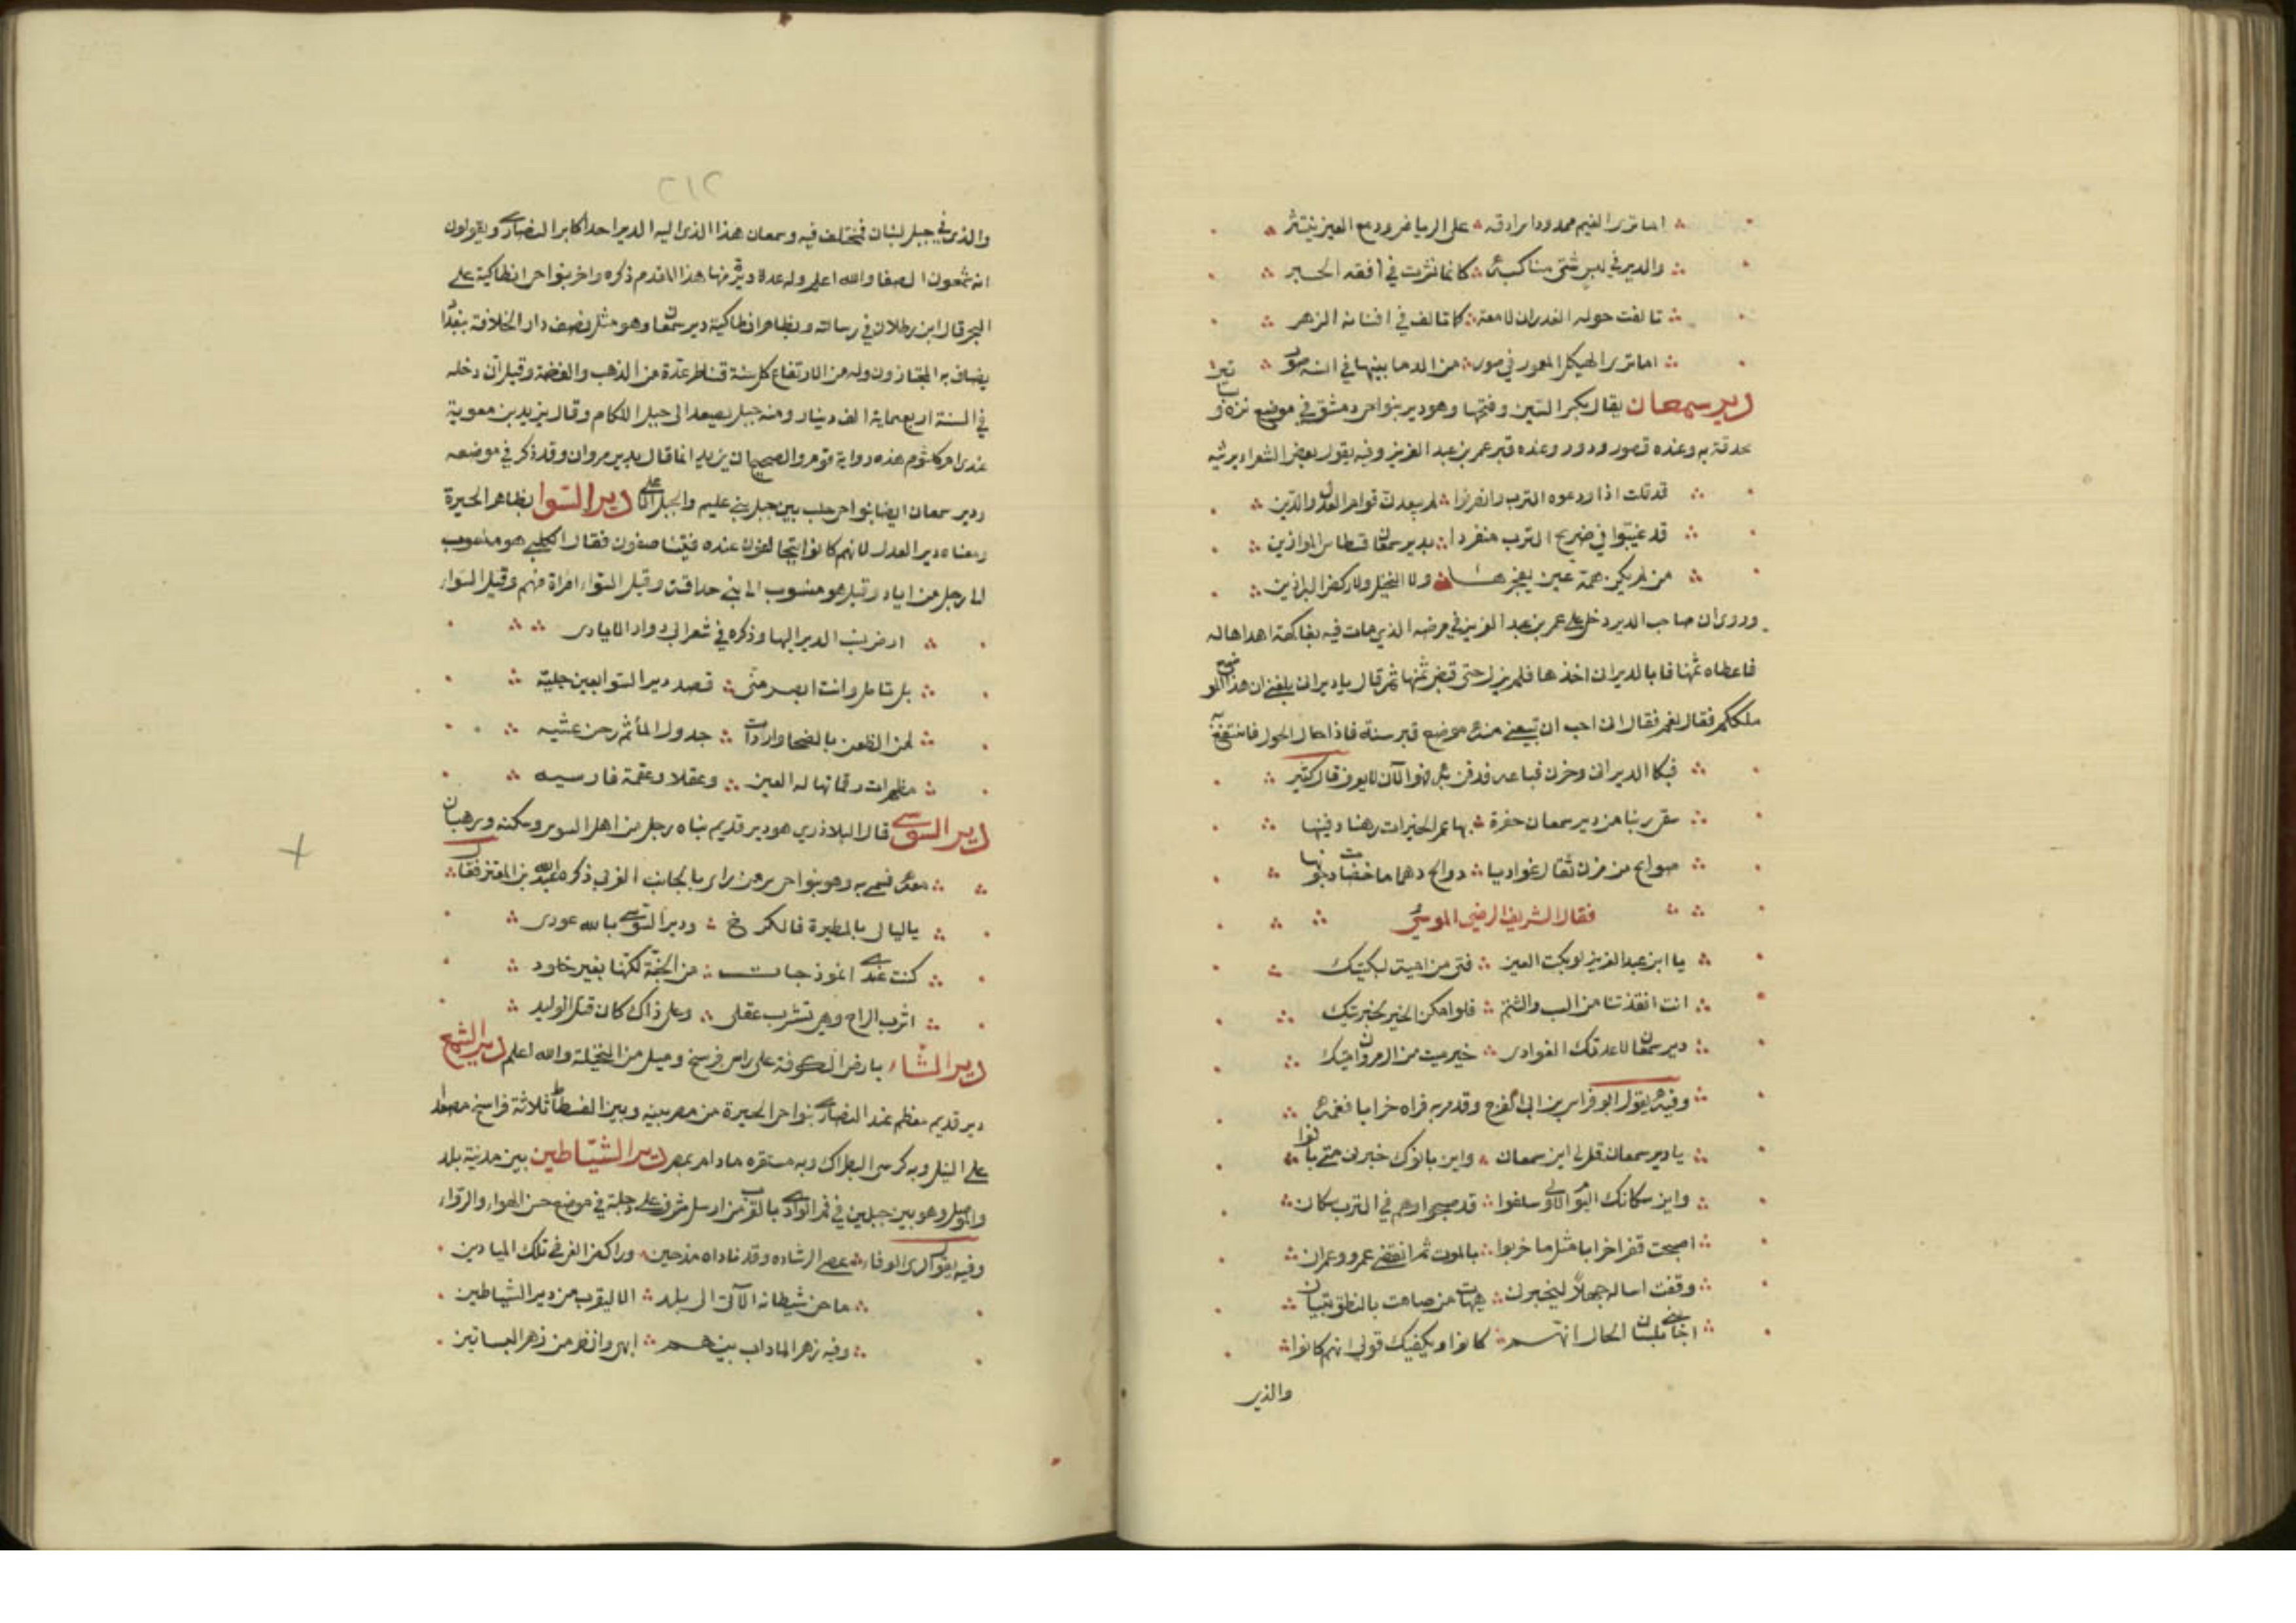 اما ترى الغيم ممدودا سرادقه على الرياض ودمع العين ينتثر
والدير في لبس شتى مناكبه كانما نثرت في افقه الحبر
تالفت حوله الغدران لامعة كما تالف في افنانه الزهر
اما ترى الهيكل المعمور في صور من الدما بينها في انسه صور
دير سمعان يقال بكسر السين وفتحها وهو دير بنواحى دمشق في موضع نزه وبساتين
محدقة به وعنده قصور ودور وعنده قبر عمر بن عبد العزيز وفيه يقول بعض الشعرا يرثيه
قد قلت اذ اودعوه الترب وانصرفوا لم يبعدن قوام العدل والدين
قد غيبوا في ضريح الترب منفردا بدير سمعان قسطاس الموازين
من لم يكن همه عين يفجرها ولا النخيل ولا ركض البراذين
وروى ان صاحب الدير دخل على عمر بن عبد العزيز في مرضه الذي مات فيه بفاكهة اهداها له
فاعطاه ثمنها فابا الديرانى اخذها فلم يزل حتى قبض ثمنها ثم قال يا ديرانى بلغنى ان هذا الموضع
ملككم فقال نعم فقال انى احب ان تبيعنى منه موضع قبر سنة فاذا حال الحول فانتفع به
فبكا الديرانى وحزن فباعه فدفن به فهو الآن لا يعرف قال كثير
سقى ربنا من دير سمعان حفرة بها عمر الخيرات رهنا دفينها
صوابح من مزن ثقال غواديا دوالح دهما ماخضات دجونها
فقال الشريف الرضى الموسوى
يا ابن عبد العزيز لو بكت العين فتى من امية لبكيتك
انت انقذتنا من السب والشتم فلو امكن الخير لخبرتيك
دير سمعان لا عدتك الغوادى خير ميت من ال مروان ميتك
وفيه يقول ابو فراس بن ابى الفرج وقد مر به فراه خرابا فغمه
يا دير سمعان قل لى اين سمعان واين بانوك خبرنى متى بانوا
واين سكانك اليوم الاولى سلفوا قد صبحوا وهم في الترب سكان
اصبحت قفرا خرابا مثل ما خربوا بالموت ثم انقضى عمرو وعمران
وقفت اساله جهلاً ليخبرنى هيهات من صامت بالنطق تبيان
اجابنى بلسان الحال انهم كانوا ويكفيك قولى انهم كانوا
والذى
٢١٢
والذى في جبل لبنان فمختلف فيه وسمعان هذا الذى اليه الدير احد اكابر النصارى ويقولون
انه شمعون الصفا والله اعلم وله عدة ديرة منها هذا المقدم ذكره واخر بنواحى انطاكية على
البحر قال ابن بطلان في رسالته وبظاهر انطاكية دير سمعان وهو مثل نصف دار الخلافة ببغداد
يضاف به المجتازون وله من الارتفاع كل سنة قناطر عدة من الذهب والفضة وقيل ان دخله
في السنة اربعماية الف دينار ومنه جبل يصعد الى جبل اللكام وقال يزيد بن معوية
عندى ام كلثوم هذه رواية قوم والصحيح ان يزيد انما قال بدير مروان وقد ذكر في موضعه
ودير سمعان ايضا بنواحى حلب بين جبل بنى عليم والجبل الاعلى دير السوا بظاهر الحيرة
ومعناه دير العدل لانهم كانوا يتحالفون عنده فيتناصفون فقال الكلبى هو منسوب
الى رجل من اياد وقيل هو منسوب الى بنى حذاقة وقيل السوا امراة منهم وقيل السوا
ارض نسب الدير اليها وذكره في شعر ابى دواد الايادى
بل تامل وانت ابصر منى قصد دير السوا بعين جلية
لمن الظعن بالضحا واردات جدول الماء ثم رحن عشيه
مظهرات رقما تهاله العين وعقلا وعقمة فارسيه
دير السوسى قال البلاذرى هو دير قديم بناه رجل من اهل السوس وسكنه ورهبان
معه فسمى به وهو بنواحى سر من راى بالجانب الغربى ذكره عبد الله بن المعتز فقال
ياليال بالمطيرة فالكرخ ودير السوسى بالله عودى
كنت عندى انموذجات من الجنة لكنها بغير خلود
اشرب الراح وهى تشرب عقلى وعلى ذاك كان قتل الوليد
دير الشاء بارض الكوفة على راس فرسخ وميل من النخيلة والله اعلم دير الشمع
دير قديم معظم عند النصارى بنواحى الجيزة من مصر بينه وبين الفسطاط ثلاثة فراسخ مصعدا
على النيل وبه كرسى البطراك وبه مستقره مادام بمصر دير الشياطين بين مدينة بلد
والموصل وهو بين جبلين في فم الوادى بالقرب من اوسل مشرف على دجلة في موضع حسن الهواء والرواء
وفيه يقول السرى الرفاء عصى الرشاد وقد ناداه مذ حين وراكض الغى في تلك الميادين
ما حن شيطانه الآتى الى بلد الا ليقرب من دير الشياطين
وفيه زهر الاداب بينهم ابهى وانضر من زهر البساتين